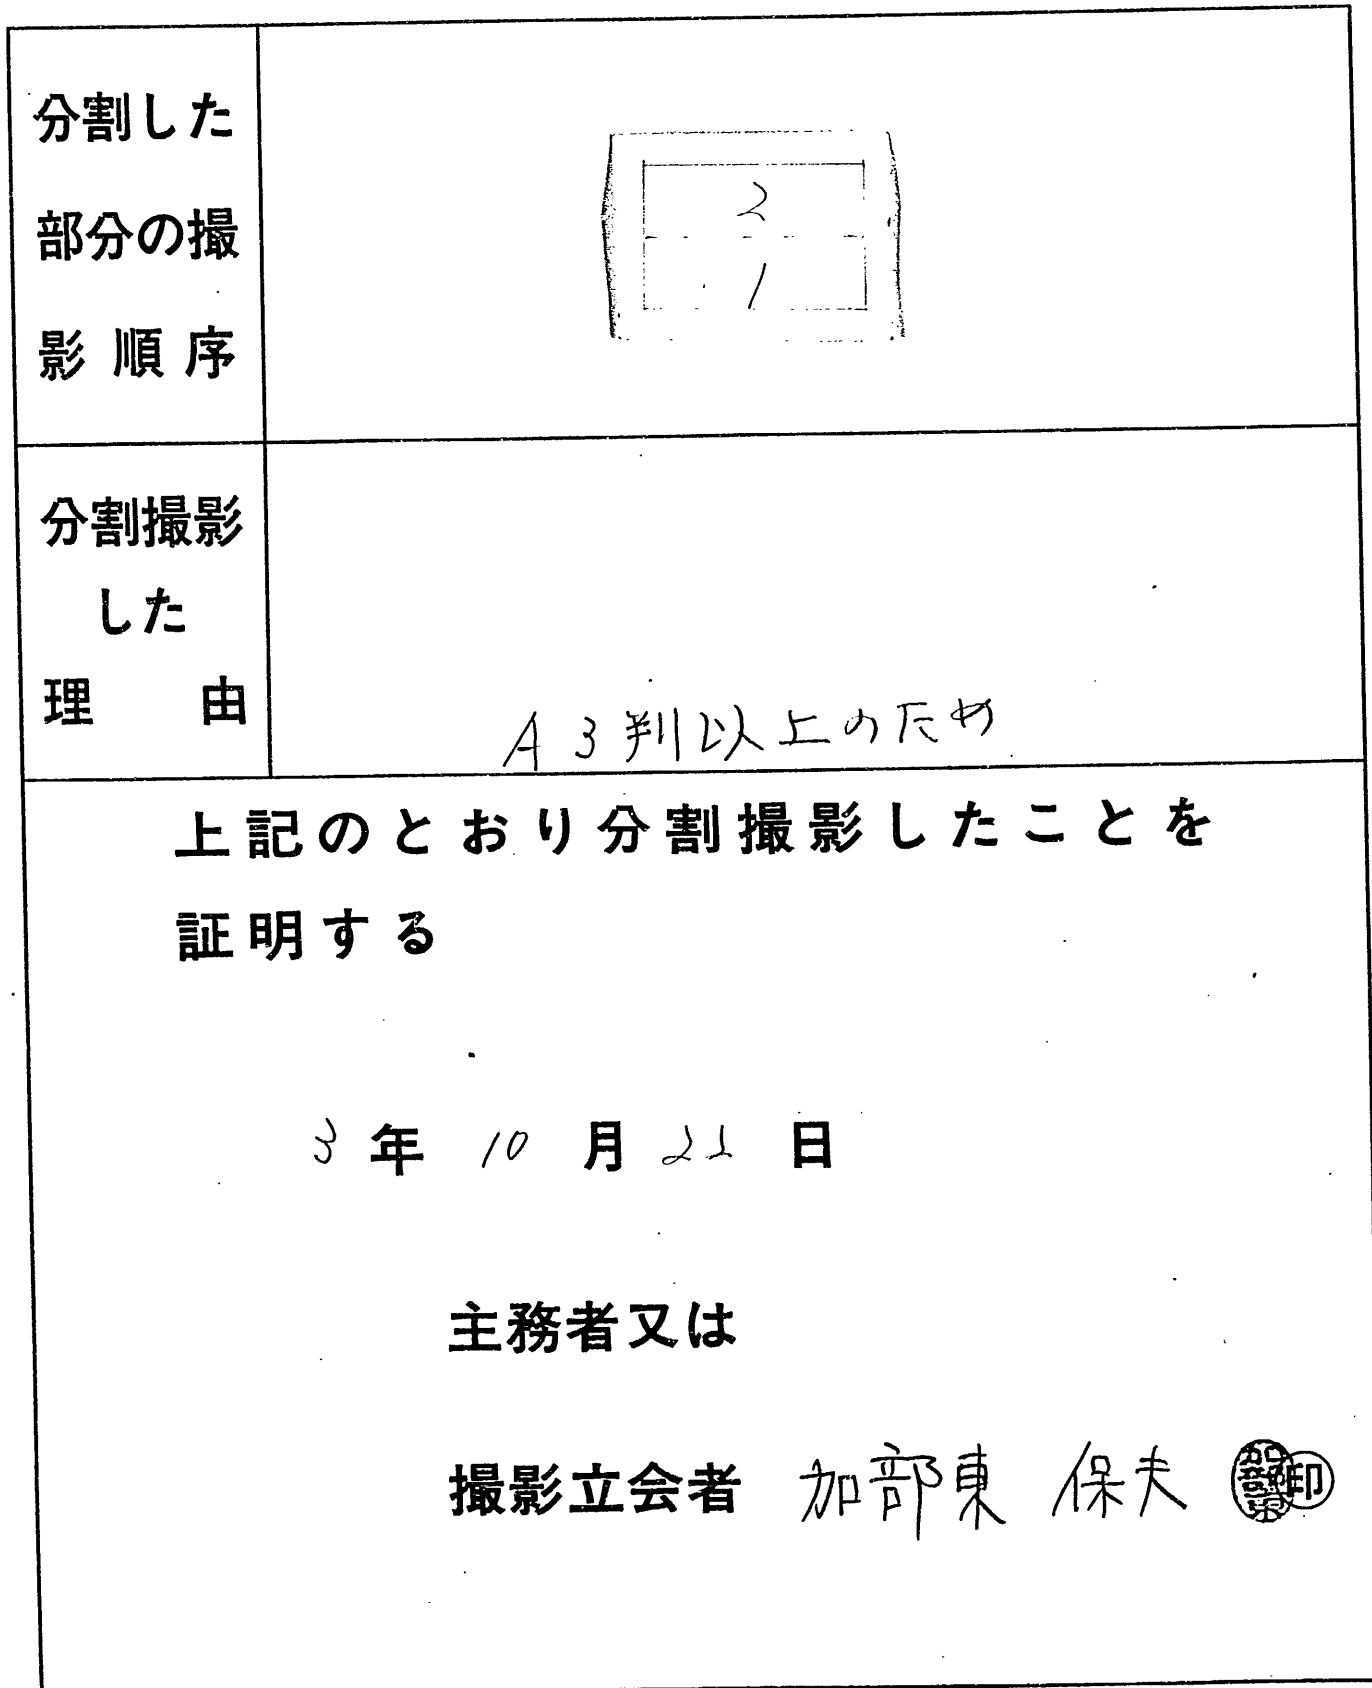 分割した
部分の撮
影順序
2
1
分割撮影
した
理由
A3判以上のため
上記のとおり分割撮影したことを
証明する
3年10月22日
主務者又は
撮影立会者 加部東 保夫 加部東 印